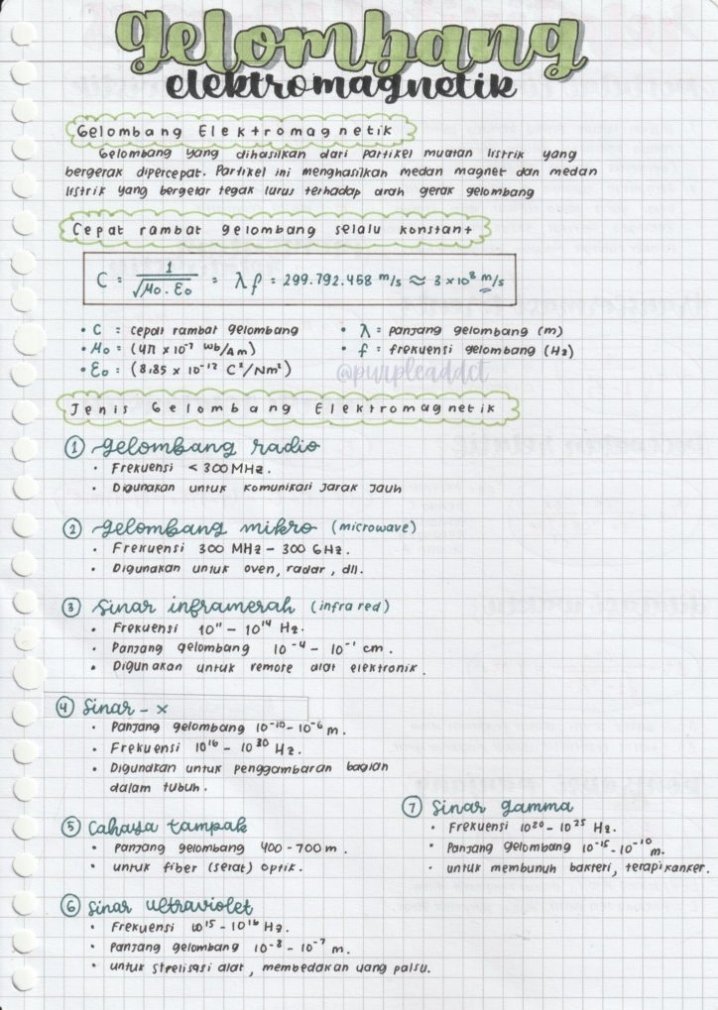 gelombang
elektromagnetik
Gelombang Elektromagnetik
Gelombang yang dihasilkan dari partikel muatan listrik yang
bergerak dipercepat. Partikel ini menghasilkan medan magnet dan medan
listrik yang bergetar tegak lurus terhadap arah gerak gelombang
Cepat rambat gelombang selalu konstant
C = 1/√μ₀.ε₀ = λf = 299.792.458 m/s ≈ 3 × 10⁸ m/s
• C = cepat rambat gelombang
• μ₀ = (4π × 10⁻⁷ Wb/Am)
• ε₀ = (8,85 × 10⁻¹² C²/Nm²)
• λ = panjang gelombang (m)
• f = frekuensi gelombang (Hz)
@purpleaddct
Jenis Gelombang Elektromagnetik
① gelombang radio
• Frekuensi < 300 MHz.
• Digunakan untuk komunikasi jarak jauh
② gelombang mikro (microwave)
• Frekuensi 300 MHz – 300 GHz.
• Digunakan untuk oven, radar, dll.
③ Sinar inframerah (infra red)
• Frekuensi 10¹¹ – 10¹⁴ Hz.
• Panjang gelombang 10⁻⁴ – 10⁻¹ cm.
• Digunakan untuk remote alat elektronik.
④ Sinar - x
• Panjang gelombang 10⁻¹⁰ – 10⁻⁶ m.
• Frekuensi 10¹⁶ – 10²⁰ Hz.
• Digunakan untuk penggambaran bagian
dalam tubuh.
⑤ Cahaya tampak
• Panjang gelombang 400 - 700 m.
• untuk fiber (serat) optik.
⑥ Sinar ultraviolet
• Frekuensi 10¹⁵ – 10¹⁶ Hz.
• Panjang gelombang 10⁻⁸ – 10⁻⁷ m.
• untuk strelisasi alat, membedakan uang palsu.
⑦ Sinar gamma
• Frekuensi 10²⁰ – 10²⁵ Hz.
• Panjang gelombang 10⁻¹⁵ - 10⁻¹⁰ m.
• untuk membunuh bakteri, terapi kanker.